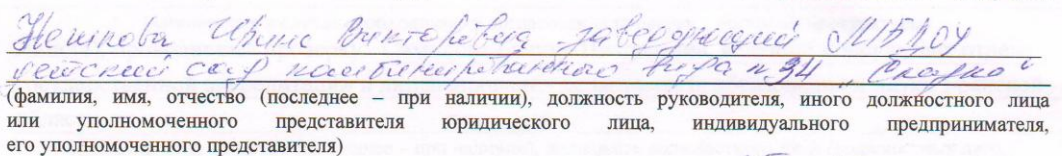 Нешкова Ирина Викторовна заведующий МБДОУ
детский сад комбинированного вида №34 „Сказка"
(фамилия, имя, отчество (последнее – при наличии), должность руководителя, иного должностного лица
или уполномоченного представителя юридического лица, индивидуального предпринимателя,
его уполномоченного представителя)